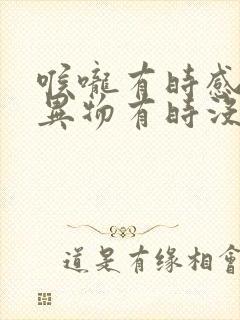 喉嚨有時感
異物有時沒
道是有缘相會